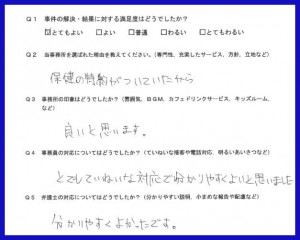 Q1 事件の解決・結果に対する満足度はどうでしたか?
☑とてもよい □よい □普通 □わるい □とてもわるい
Q2 当事務所を選ばれた理由を教えてください。(専門性、充実したサービス、方針、立地など)
保健の特約がついていたから
Q3 事務所の印象はどうでしたか?(雰囲気、BGM、カフェドリンクサービス、キッズルーム、
など)
良いと思います。
Q4 事務員の対応についてはどうでしたか?(ていねいな接客や電話対応、明るいあいさつなど)
とてもていねいな対応で分かりやすくよいと思いました
Q5 弁護士の対応についてはどうでしたか?(分かりやすい説明、小まめな報告や配慮など)
分かりやすくよかったです。